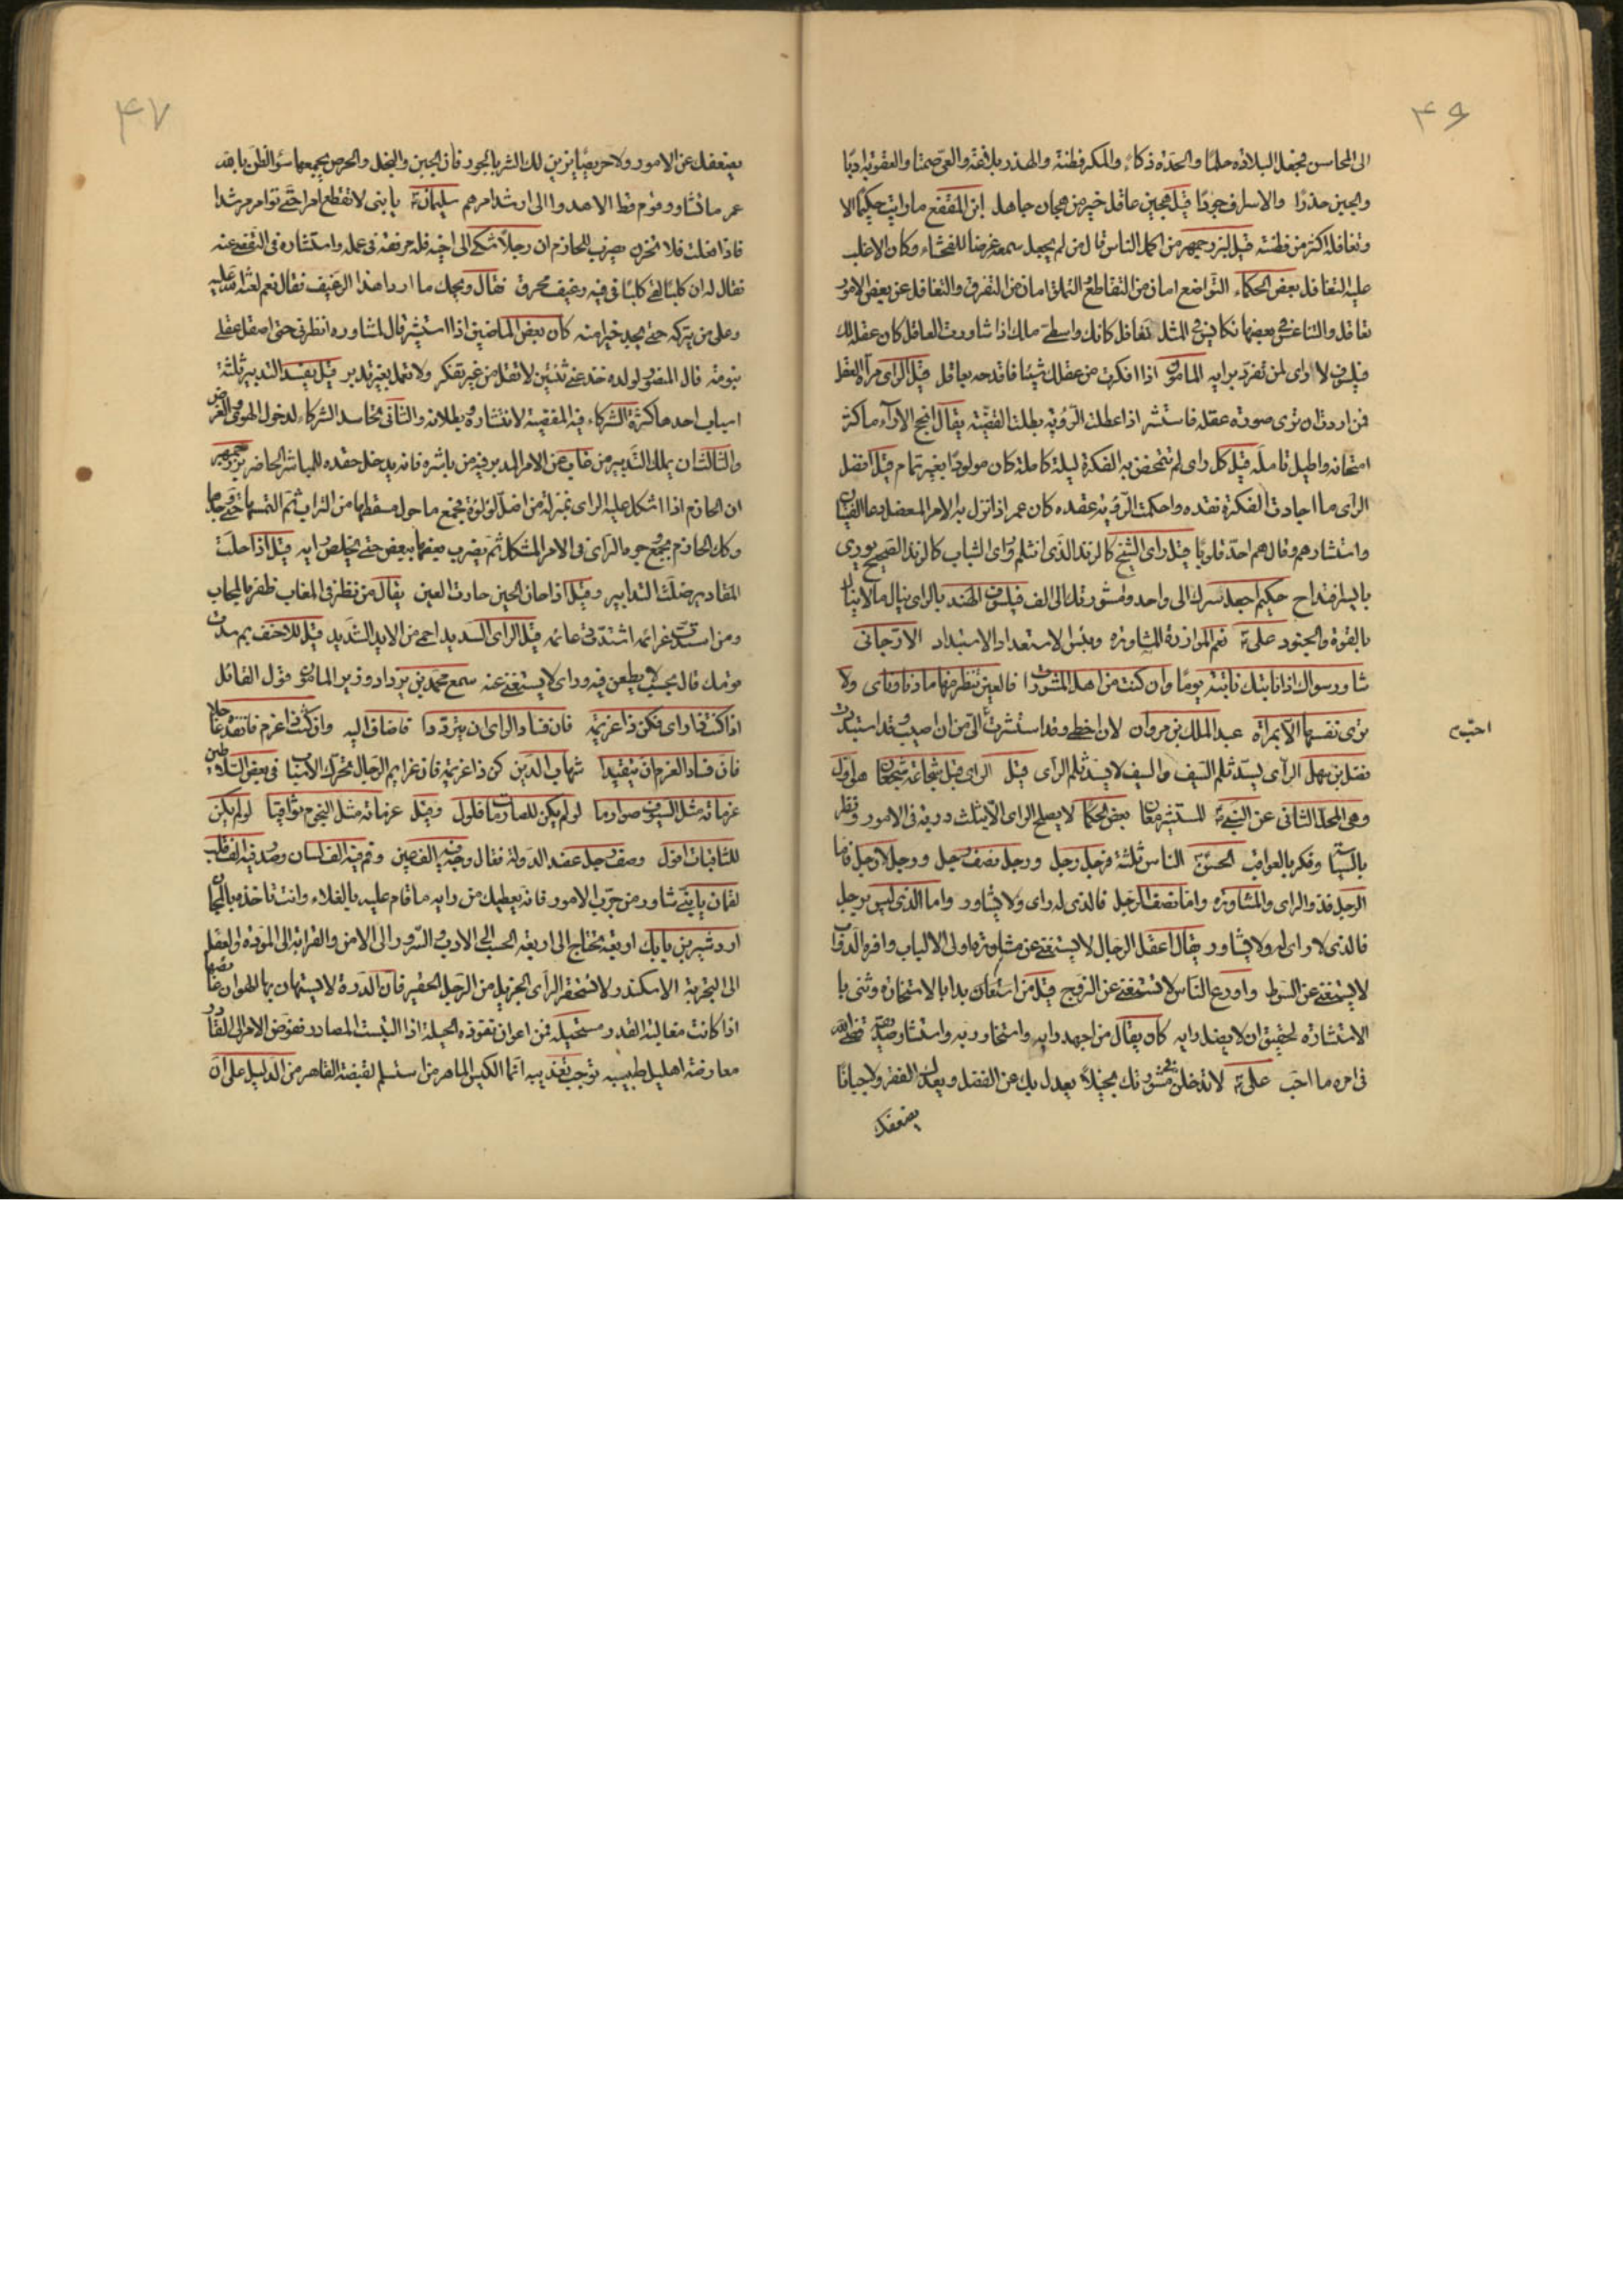 ٤٦
الى المحاسن فيجعل البلادة حلما والحدة ذكاء والمكر فطنة والهذر بلاغة والعى صمتا والعقوبة ادبا
والجبن حذرا والاسراف جودا قيل هجين عاقل خير من هجان جاهل ابن المقفع ما رايت حكيما الا
وتغافله اكثر من فطنته قيل لبزرجمهر من اكمل الناس قال من لم يجعل سمعه غرضا للفحشاء وكان الاغلب
عليه التغافل بعض الحكماء التواضع امان من التقاطع التملق امان من التفرق والتغافل عن بعض الامور
تعاقل والتناعس فى بعضها تكايس فى المثل تغافل كانك واسطى مالك اذا شاورت العاقل كان عقله لك
فيلسوف لا راى لمن تفرد برايه المأمون اذا انكرت من عقلك شيئا فاقدحه بعاقل قيل الراى مرآة العقل
فمن اردت ان ترى صورة عقله فاستشر اذا عطلت الروية بطلت القضية يقال انجح الآراء ما كثر
امتحانه واطيل تامله قيل كل راى لم تتمخض به الفكرة ليلة كاملة كان مولودا بغير تمام قيل افضل
الراى ما اجادت الفكرة نقده واحكمت الروية عقده كان عمر اذا نزل به الامر المعضل دعا الفتيان
واستشارهم وقال هم احد قلوبا قيل راى الشيخ كالزند الذى انثلم وراى الشباب كالزند الصحيح يورى
بايسر اقتداح حكيم اجعل سرك الى واحد ومشورتك الى الف فيلسوف الهند بالراى ينال ما لا ينال
بالقوة والجنود على ع نعم الموازرة المشاورة وبئس الاستعداد الاستبداد الارجانى
شاور سواك اذا نابتك نائبة يوما وان كنت من اهل المشورات فالعين تنظر منها ما دنا وناى ولا
ترى نفسها الا بمرآة عبد الملك بن مروان لان اخطى وقد استشرت الى من ان اصيب وقد استبددت
احب
فضل بن سهل الراى يسد ثلم السيف والسيف لا يسد ثلم الراى قيل الراى قبل شجاعة الشجعان هو اول
وهى المحل الثانى عن النبى ص المستشير معان بعض الحكما لا يصلح الراى الا بثلث دربة فى الامور ونظر
بالسياسة وفكر بالعواقب الحسن ع الناس ثلثة فرجل رجل ورجل نصف رجل ورجل لا رجل فاما
الرجل فذو الراى والمشاورة واما نصف الرجل فالذى له راى ولا يشاور واما الذى ليس برجل
فالذى لا راى له ولا يشاور يقال اعقل الرجال لا يستغنى عن مشاورة اولى الالباب وافره الدواب
لا يستغنى عن السوط واورع النساء لا تستغنى عن الزوج قيل من استعان بدا بالاستخارة وثنى با
الاستشارة لحقيق ان لا يضل رايه كان يقال من اجهد رايه واستخار ربه واستشار صديقه قضى الله
فى امره ما احب على ع لا تدخلن فى مشورتك بخيلا يعدل بك عن الفضل ويعدك الفقر ولا جبانا
يضعفك
٤٧
يضعفك عن الامور ولا حريصا يزين لك الشر بالجور فان الجبن والبخل والحرص يجمعها سوء الظن بالله
عمر ما تشاور قوم قط الا هدوا الى ارشد امرهم سليمان ع يا بنى لا تقطع امرا حتى توامر مرشدا
فاذا فعلت فلا تحزن يضرب الحازم ان رجلا شكى الى اخيه قلة مرفقته فى عمله واستشاره فى التفصى عنه
فقال له ان كلبا لقى كلبا فى فيه رغيف محرق فقال ويحك ما اردا هذا الرغيف فقال نعم لعنة الله عليه
وعلى من يتركه حتى يجد خيرا منه كان بعض الماضين اذا استشير قال لمشاوره انظرنى حتى اصقل عقلى
بنومة قال المنصور لولده خذ عنى ثنتين لا تقل من غير تفكر ولا تعمل بغير تدبر قيل يفسد التدبير ثلثة
اسباب احدها كثرة الشركاء فيه المفضية لانتشاره وبطلانه والثانى تحاسد الشركاء لدخول الهوى والغرض
والثالث ان يملك التدبير من غاب عن الامر المدبر فيه من باشره فانه يدخل حقده للمباشر الحاضر بزرجمهر
ان الحازم اذا اشكل عليه الراى بمنزلة من اضل لؤلؤة فجمع ما حول مسقطها من التراب ثم التمسها حتى وجدها
وكذلك الحازم يجمع وجوه الراى فى الامر المشكل ثم يضرب بعضها ببعض حتى يخلص رايه قيل اذا حلت
المقادير ضلت التدابير وقيل اذا حان الحين حارت العين يقال من نظر فى المغاب ظفر بالمحاب
ومن استدت عزائمه اشتدت دعائمه قيل الراى السديد احمى من الايد الشديد قيل للاحنف بم سدت
قومك قال بحسب لا يطعن فيه وراى لا يستغنى عنه سمع محمد بن يزداد وزير المامون قول القائل
اذا كنت ذا راى فكن ذا عزيمة فان فساد الراى ان يترددا فاضاف اليه وان كنت ذا عزم فانفذه عاجلا
فان فساد العزم ان يتقيدا شهاب الدين كن ذا عزيمة فان عزايم الرجال تحرك الاسباب فى بعض السلاطين
عزماته مثل السيوف صوارما لو لم يكن للصارمات فلول وقيل عزماته مثل النجوم ثواقبا لو لم يكن
للثاقبات افول وصف رجل عضد الدولة فقال وجه فيه الف عين وفم فيه الف لسان وصدر فيه الف قلب
لقمان يا بنى شاور من جرب الامور فانه يعطيك من رايه ما قام عليه بالغلاء وانت تاخذه بالمجان
اردشير بن بابك اربعة تحتاج الى اربعة الحسب الى الادب والسرور الى الامن والقرابة الى المودة والعقل
الى التجربة الاسكندر لا تستحقر الراى الجزيل من الرجل الحقير فان الدرة لا يستهان بها لهوان غائصها
اذا كانت مغالبة القدر مستحيلة فمن اعوان نفوذه الحيلة اذا التبست المصادر ففوض الامر الى القادر
معارضة العليل طبيبه توجب تعذيبه انما الكيس الماهر من استسلم لقبضة القاهر من الدليل على ان